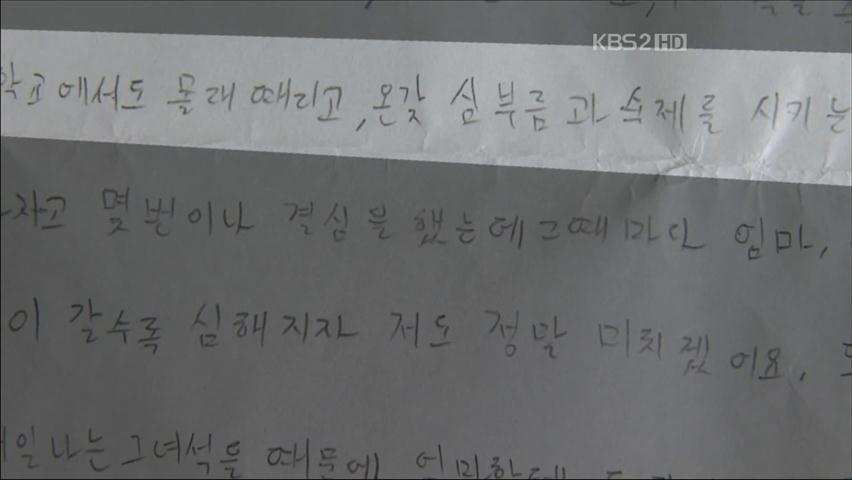 KBS2 HD
학교에서도 몰래 때리고, 온갖 심부름과 숙제를 시키는
자고 몇번이나 결심을 했는데 그때마다 엄마,
이 갈수록 심해지자 저도 정말 미치겠어요.
나는 그녀석들 때문에 엄마한테